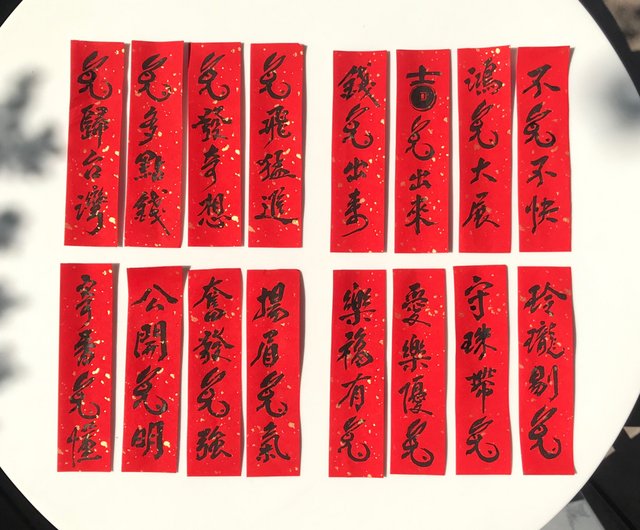 兔歸台灣
兔多點錢
兔發奇想
兔飛猛進
錢兔出來
吉兔出來
鴻兔大展
不兔不快
兔懂
公開兔明
奮發兔強
揚眉兔氣
樂福有兔
愛樂優兔
守珠帶兔
玲瓏剔兔